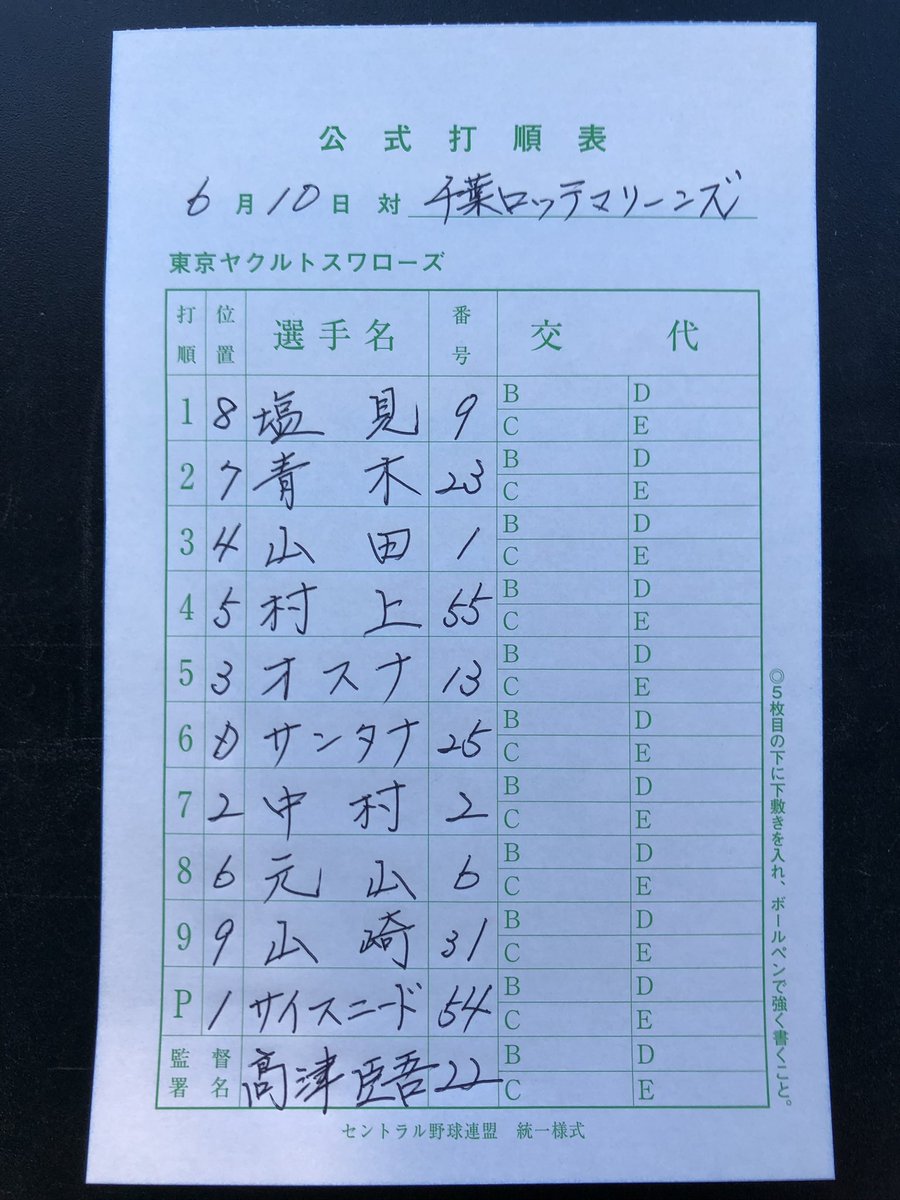 公式打順表
6月10日 対 千葉ロッテマリーンズ
東京ヤクルトスワローズ
打順 位置 選手名 番号 交代
1 8 塩見 9 B D C E
2 7 青木 23 B D C E
3 4 山田 1 B D C E
4 5 村上 55 B D C E
5 3 オスナ 13 B D C E
6 D サンタナ 25 B D C E
7 2 中村 2 B D C E
8 6 元山 6 B D C E
9 9 山崎 31 B D C E
P 1 サイスニード 54 B D C E
監督署名 髙津臣吾 22 B D C E
◎5枚目の下に下敷きを入れ、ボールペンで強く書くこと。
セントラル野球連盟 統一様式